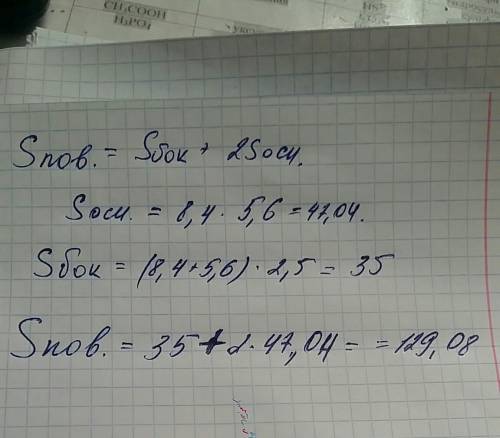 CH₃COOH
H₃PO₄
Sпов. = Sбок + 2Sосн.
Sосн. = 8,4 · 5,6 = 47,04.
Sбок = (8,4+5,6) · 2,5 = 35
Sпов. = 35 + 2 · 47,04 = = 129,08